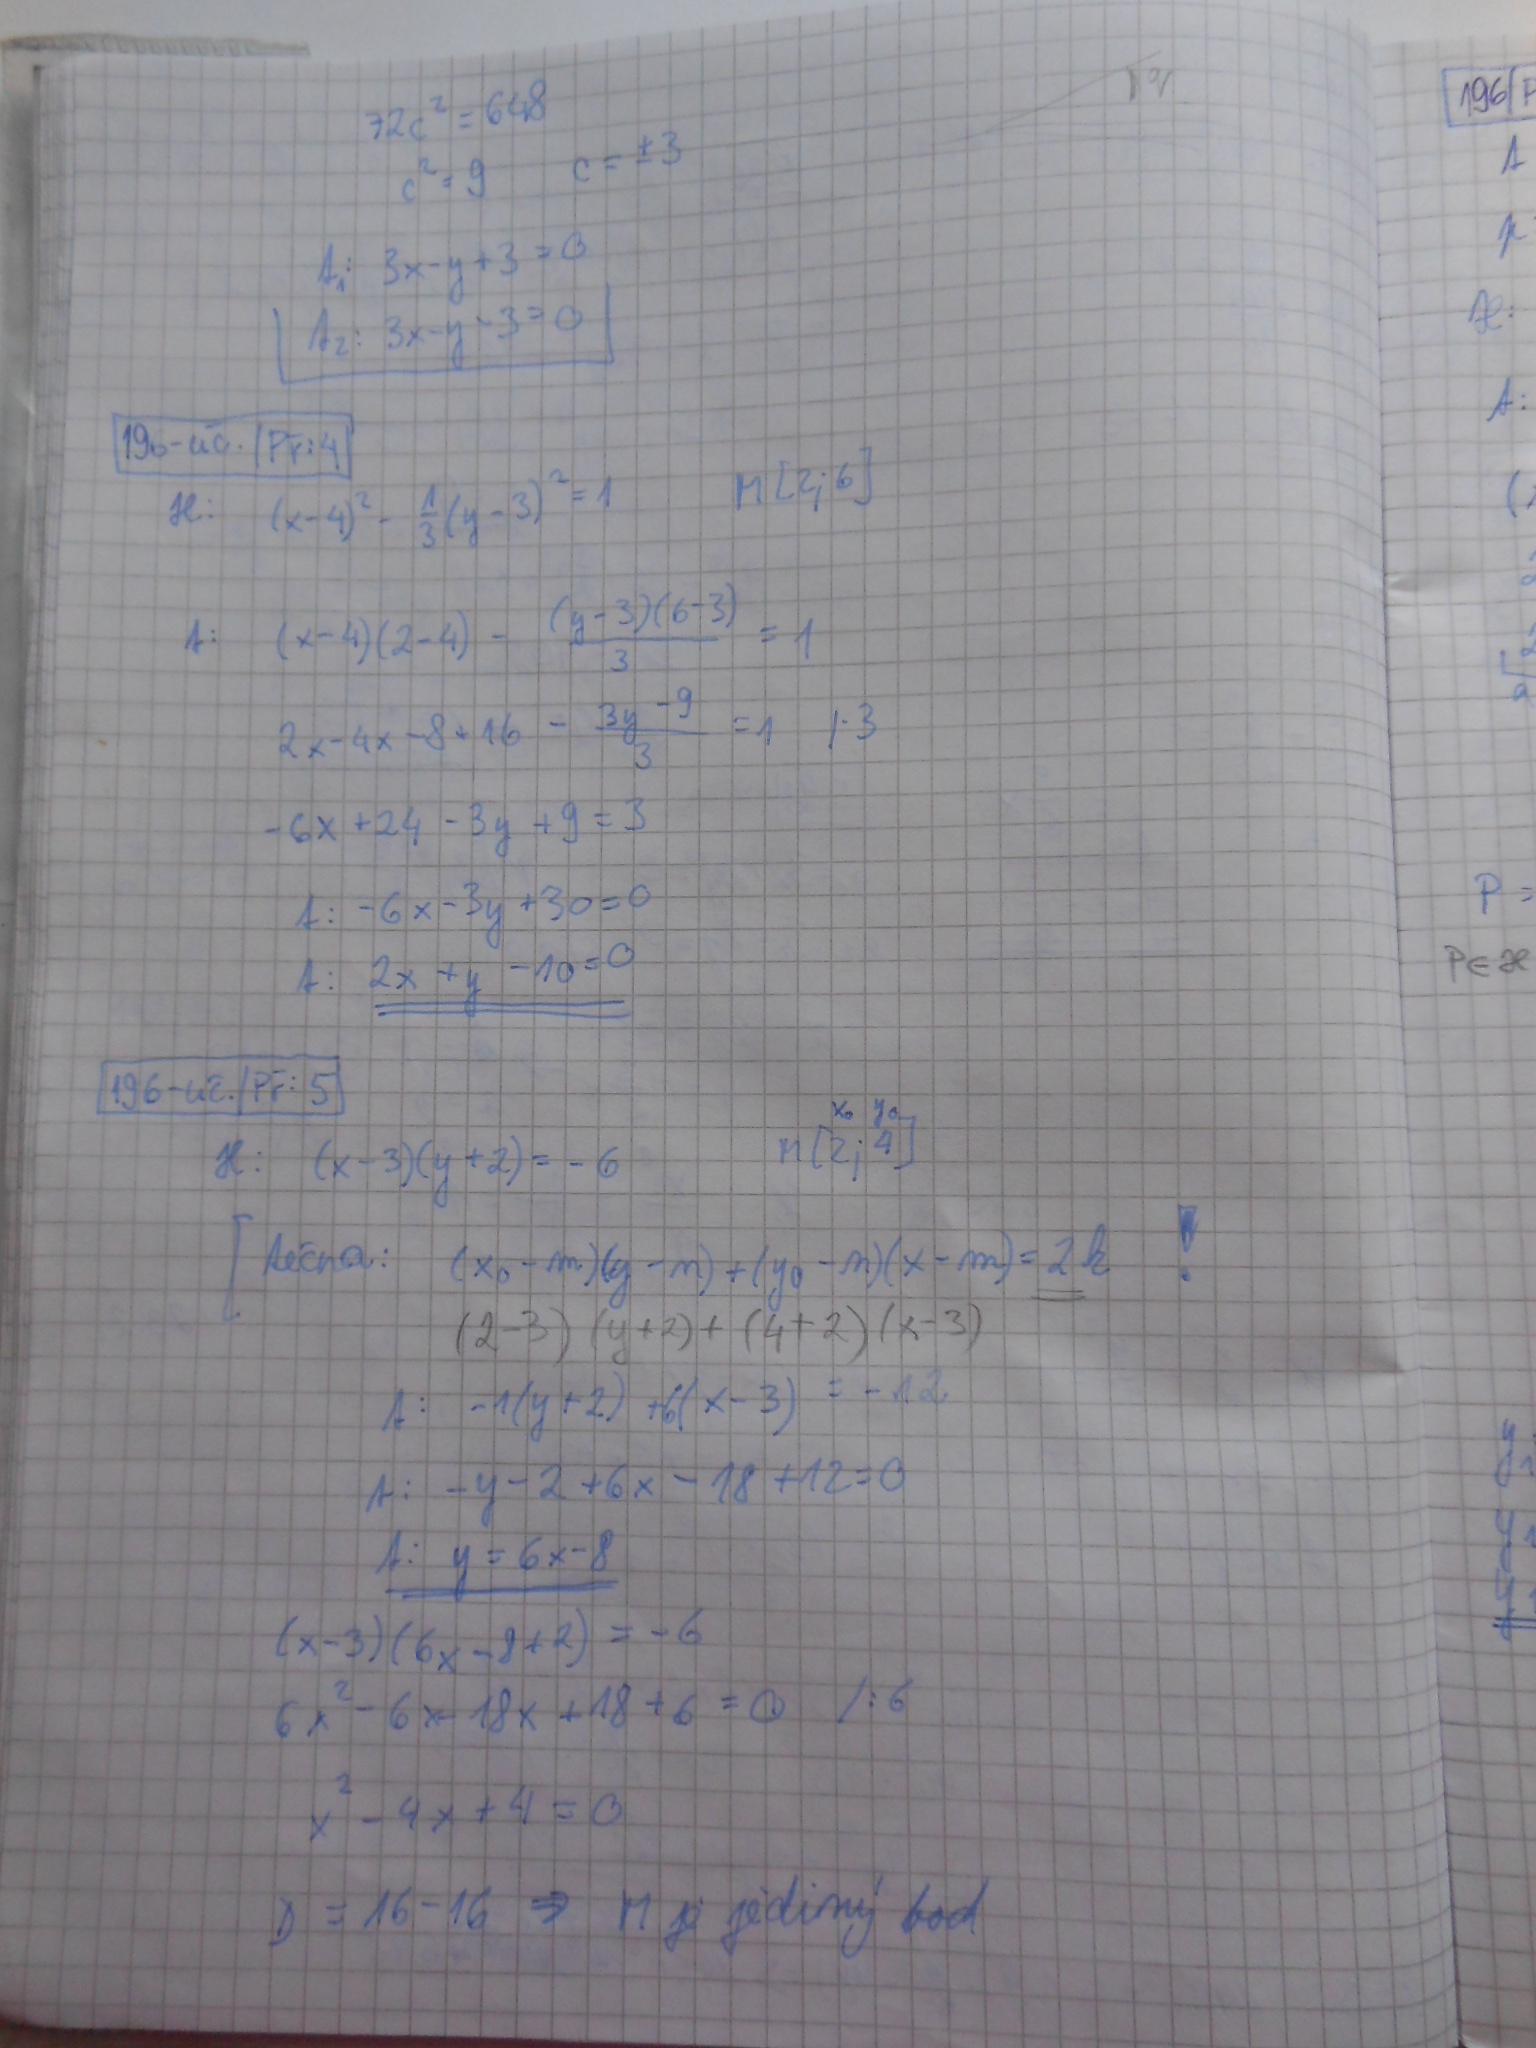 72c² = 648
c² = 9 c = ±3
t₁: 3x-y+3=0
t₂: 3x-y-3=0
196-uč. Př: 4
H: (x-4)² - 1/3(y-3)² = 1 M[2;6]
t: (x-4)(2-4) - (y-3)(6-3)/3 = 1
2x-4x-8+16 - 3y-9/3 = 1 /·3
-6x+24-3y+9=3
t: -6x-3y+30=0
t: 2x+y-10=0
196-uč. Př: 5
x₀ y₀
H: (x-3)(y+2) = -6 M[2;4]
tečna: (x₀-m)(y-n)+(y₀-n)(x-m)=2k !
(2-3)(y+2)+(4+2)(x-3)
t: -1(y+2)+6(x-3) = -12
t: -y-2+6x-18+12=0
t: y=6x-8
(x-3)(6x-8+2)=-6
6x²-6x-18x+18+6=0 /:6
x²-4x+4=0
D=16-16 ⇒ M je jediný bod
196 P
t
H:
t:
P =
P∈H